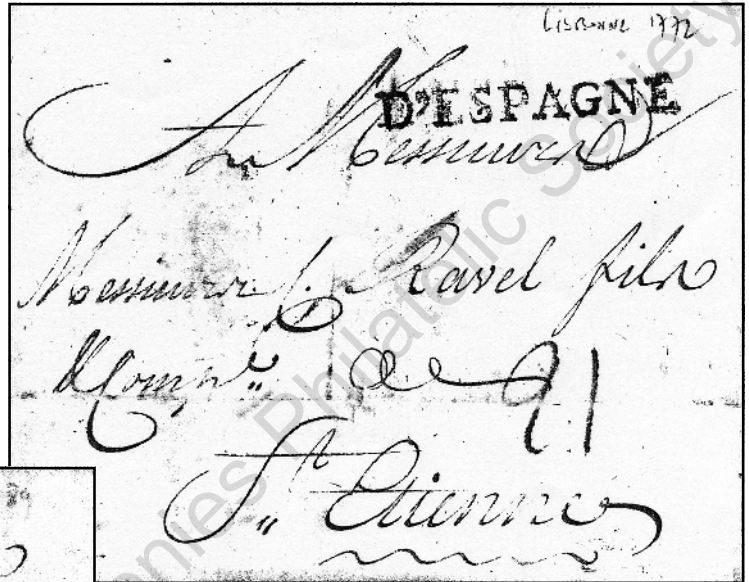 LISBONNE 1772
D'ESPAGNE
A Messieurs
Messieurs Ravel fils
& Comp.ie a 21
St. Etienne
onies Philatelic Society